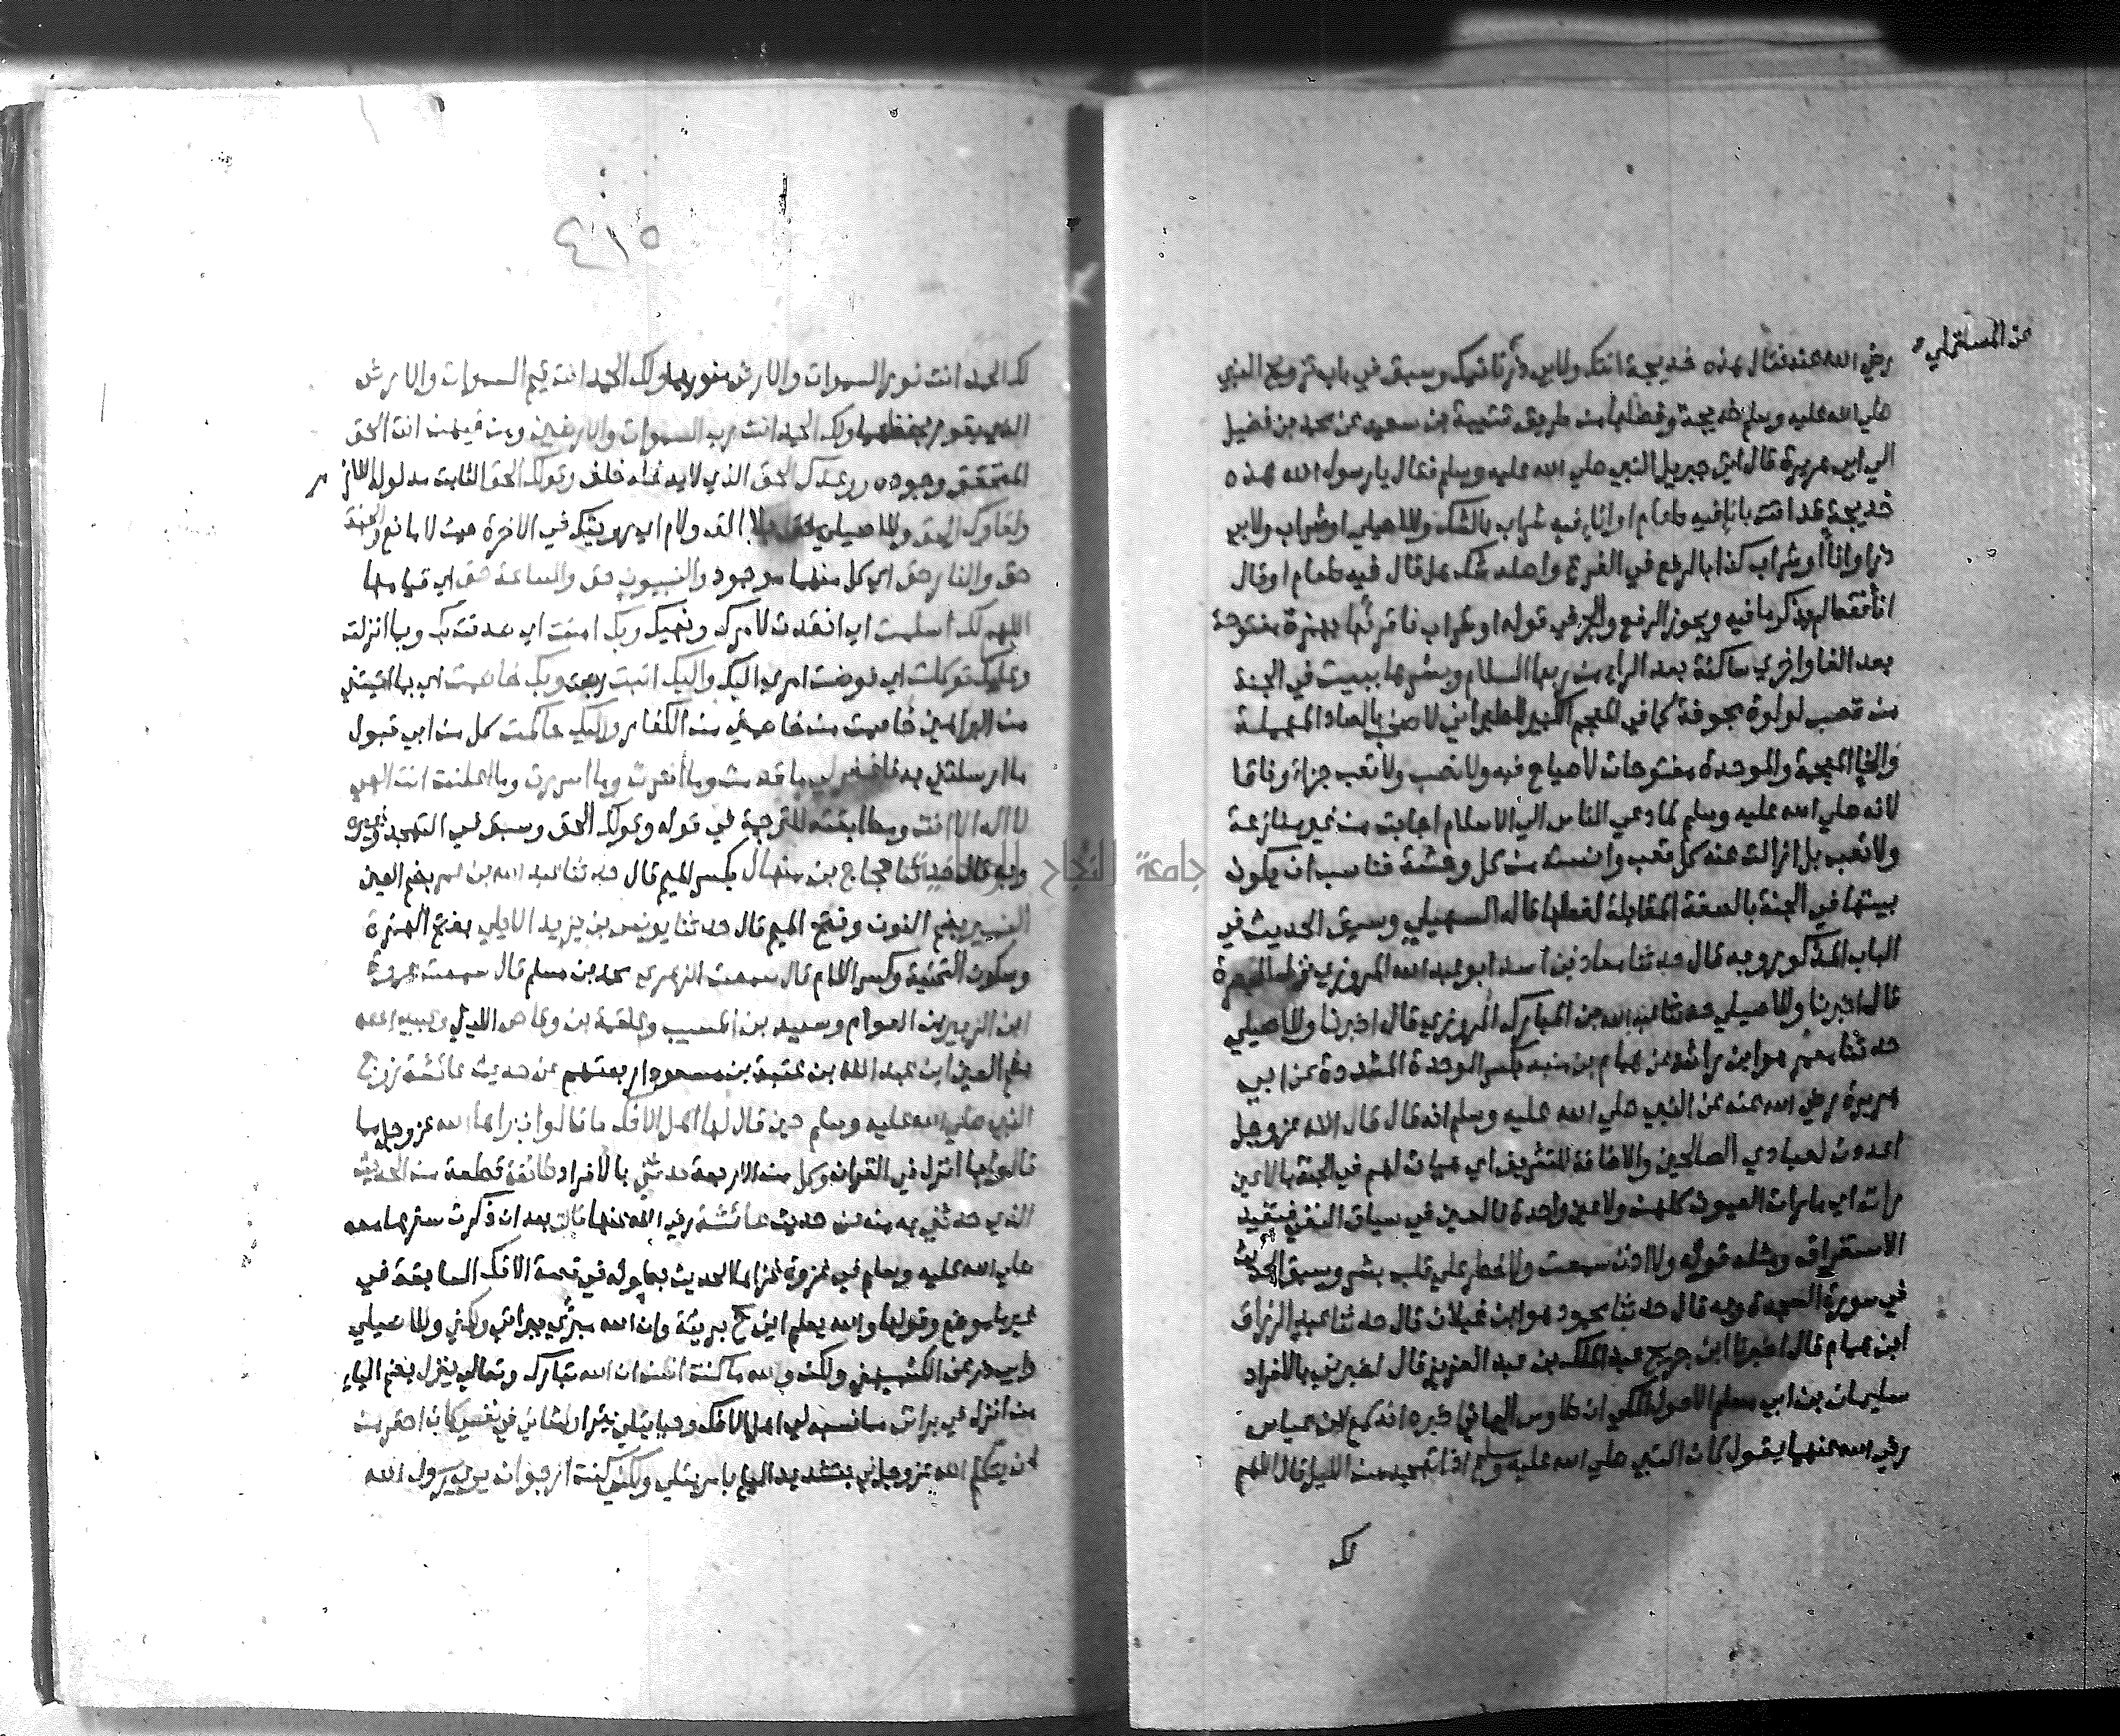 عن المستملي
رضي الله عنه فقال هذه خديجة اتتك ولابي ذر تاتيك وسبق في باب تزويج النبي
صلي الله عليه وسلم خديجة وفضلها من طريق قتيبة بن سعيد عن محمد بن فضيل
الي ابي هريرة قال اتي جبريل النبي صلي الله عليه وسلم فقال يا رسول الله هذه
خديجة قد اتت باناء فيه طعام او اناء فيه شراب بالشك وللاصيلي او شراب ولابي
ذر او اناء او شراب كذا بالرفع في الفرع واصله شك هل قال فيه طعام او قال
اناء فقط لم يذكر ما فيه ويجوز الرفع والجر في قوله او شراب فاقرئها بهمزة مفتوحة
بعد الفا واخري ساكنة بعد الراء من ربها السلام وبشرها ببيت في الجنة
من قصب لولوة مجوفة كما في المعجم الكبير للطبراني لا صخب بالصاد المهملة
والخا المعجمة والموحدة مفتوحات لا صياح فيه ولا نصب ولا تعب جزاء وفاقا
لانه صلي الله عليه وسلم لما دعي الناس الي الاسلام اجابت من غير منازعة
ولا تعب بل ازالت عنه كل تعب وانست من كل وحشة فناسب ان يكون
بيتها في الجنة بالصفة المقابلة لفعلها قاله السهيلي وسبق الحديث في
الباب المذكور وبه قال حدثنا معاذ بن اسد ابو عبد الله المروزي نزيل البصرة
قال اخبرنا وللاصيلي حدثنا عبد الله بن المبارك المروزي قال اخبرنا وللاصيلي
حدثنا معمر هو ابن راشد عن همام بن منبه بكسر الوحدة المشددة عن ابي
هريرة رضي الله عنه عن النبي صلي الله عليه وسلم انه قال قال الله عز وجل
اعددت لعبادي الصالحين والاضافة للتشريف اي هيات لهم في الجنة ما لا عين
رات اي ما رات العيون كلهن ولا عين واحدة فالعين في سياق النفي فتفيد
الاستغراق ومثله قوله ولا اذن سمعت ولا خطر علي قلب بشر وسبق الحديث
في سورة السجدة وبه قال حدثنا محمود هو ابن غيلان قال حدثنا عبد الرزاق
ابن همام قال اخبرنا ابن جريج عبد الملك بن عبد العزيز قال اخبرني بالافراد
سليمان بن ابي مسلم الاحول المكي ان طاوس اليماني اخبره انه سمع ابن عباس
رضي الله عنهما يقول كان النبي صلي الله عليه وسلم اذا تهجد من الليل قال اللهم
لك
٤١٥
لك الحمد انت نور السموات والارض منورهما ولك الحمد انت قيم السموات والارض
الذي يقوم بحفظهما ولك الحمد انت رب السموات والارضين ومن فيهن انت الحق
المتحقق وجوده ووعدك الحق الذي لا يدخله خلف وقولك الحق الثابت مدلوله اللازم
ولقاوك الحق وللاصيلي حق بلا الف ولام اي رويتك في الاخرة حيث لا مانع والجنة
حق والنار حق اي كل منهما موجود والنبيون حق والساعة حق اي قيامها
اللهم لك اسلمت اي انقدت لامرك ونهيك وبك امنت اي صدقت بك وبما انزلت
وعليك توكلت اي فوضت امري اليك واليك انبت رجعت وبك خاصمت اي بما اتيتني
من البراهين خاصمت من خاصمني من الكفار واليك حاكمت كل من ابي قبول
ما ارسلتني به فاغفر لي ما قدمت وما أخرت وما اسررت وما اعلنت انت الهي
لا اله الا انت ومطابقته للترجمة في قوله وقولك الحق وسبق في التهجد وغيره
وبه قال حدثنا حجاج بن منهال بكسر الميم قال حدثنا عبد الله بن عمر بضم العين
النميري بضم النون وفتح الميم قال حدثنا يونس بن يزيد الايلي بفتح الهمزة
وسكون التحتية وكسر اللام قال سمعت الزهري محمد بن مسلم قال سمعت عروة
ابن الزبير بن العوام وسعيد بن المسيب وعلقمة بن وقاص الليثي وعبيد الله
بضم العين ابن عبد الله بن عتبة بن مسعود اربعتهم عن حديث عائشة زوج
النبي صلي الله عليه وسلم حين قال لها اهل الافك ما قالوا فبراها الله عز وجل مما
قالوا بما انزل في القران وكل من الاربعة حدثني بالافراد طائفة قطعة من الحديث
الذي حدثني به منه عن حديث عائشة رضي الله عنها قالت بعد ان ذكرت سفرها معه
صلي الله عليه وسلم في غزوة غزاها الحديث بطوله في قصة الافك السابقة في
غير ما موضع وقولها والله يعلم اني ح بريئة وان الله مبرئي ببراتي ولكني وللاصيلي
وابي ذر عن الكشميهني ولكن والله ما كنت اظن ان الله تبارك وتعالي ينزل بضم الياء
من انزل في براتي مما نسبه لي اهل الافك وحيا يتلي يقرا ولشاني في نفسي كان احقر من
ان يتكلم الله عز وجل في بتشديد الياء بامر يتلي ولكني كنت ارجو ان يري رسول الله